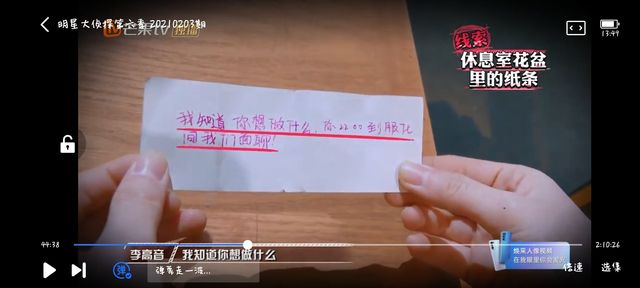 明星大侦探第六季 20210203期
芒果TV 独播
13:49
线索
休息室花盆
里的纸条
我知道你想做什么,你22:00到服化
间我们面聊!
44:38
2:10:26
李高音 我知道你想做什么
焕采人像视频
弹
弹幕走一波...
倍速
选集